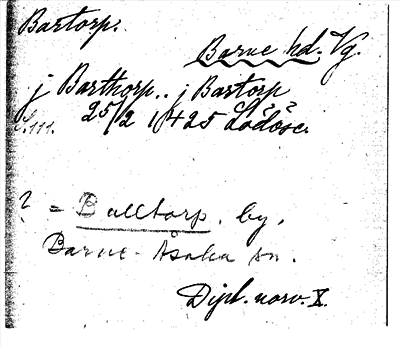 Bartorp.
Barne hd. Vg.
j Barthorp.. j Bartorp
S.111. 25/2 1425 Lödöse.
? = Balltorp, by,
Barne-Åsaka sn.
Dipl. norv. X.